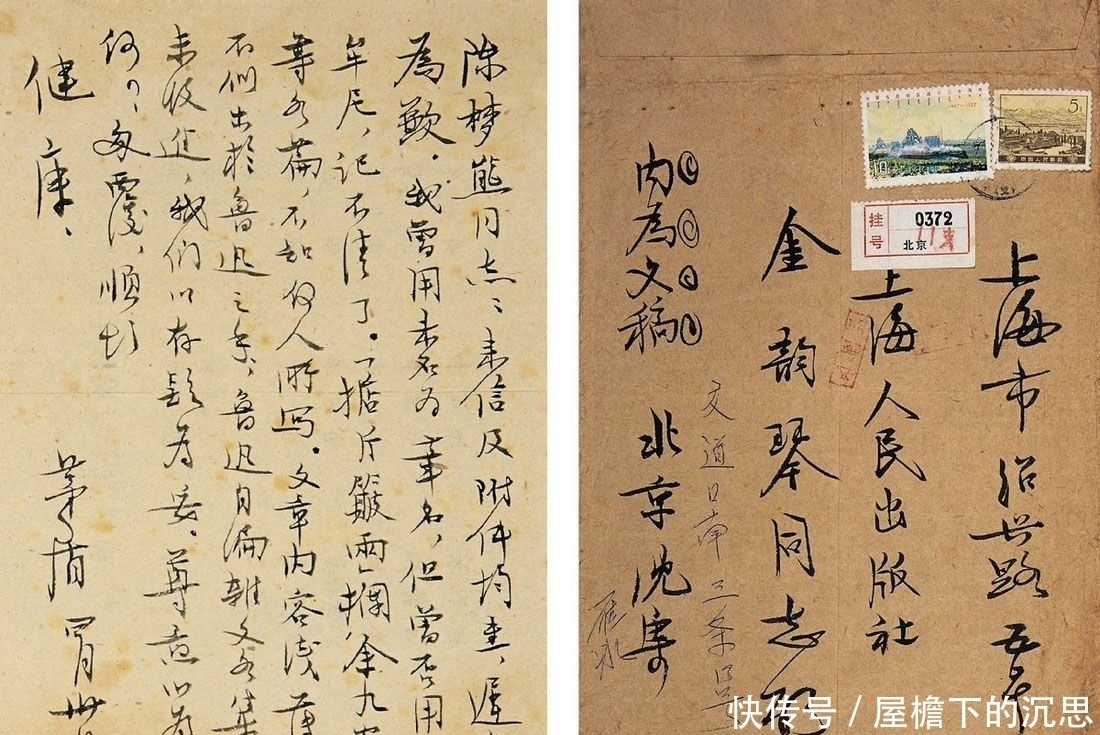 陈梦熊同志：来信及附件均悉，迟
为歉。我曾用未名为笔名，但曾否用
牟尼，记不清了。「掂斤簸两」栏
等各篇，不知何人所写。文章内容浅薄
不似出於鲁迅之手，鲁迅自编杂文各集
未收进，我们以存疑为妥。尊意以为
何？匆覆，顺颂
健康、
茅盾
上海市绍兴路
上海人民出版社
金韵琴同志
内为文稿
北京沈寄
交道口南三条
挂号
0372
北京
10
5
中国人民邮政
快传号 / 屋檐下的沉思